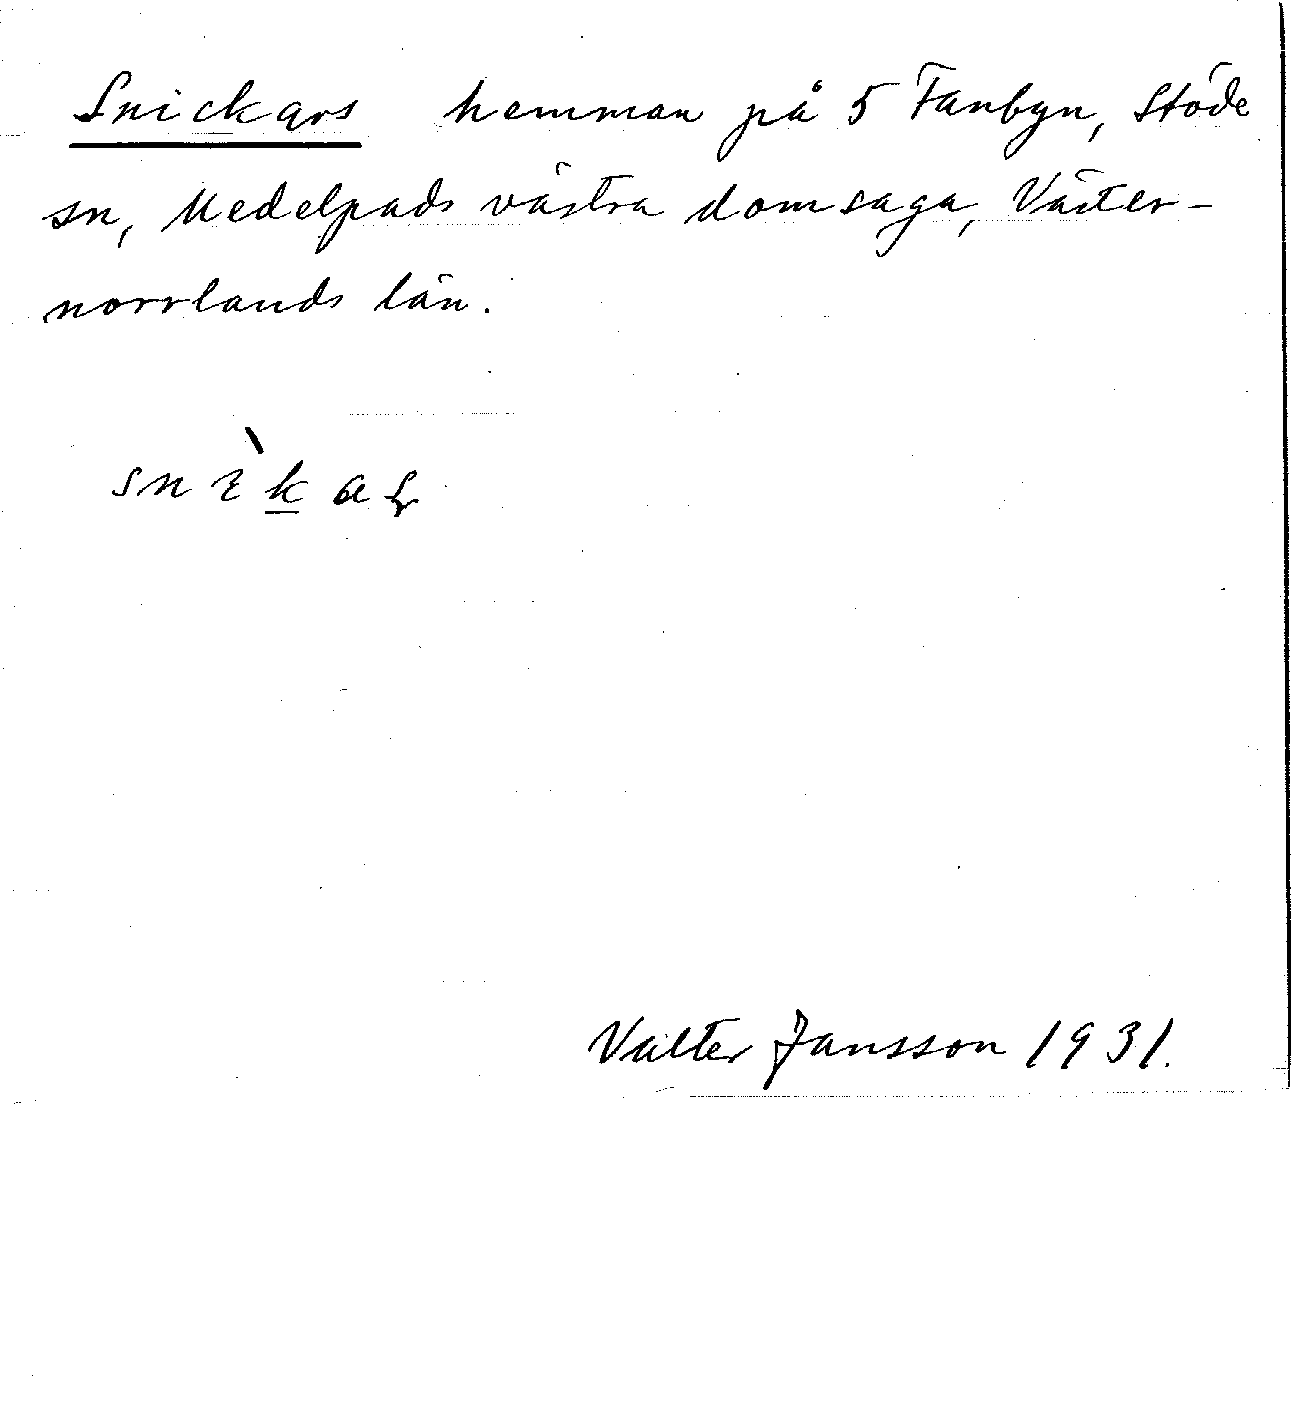 Snickars hemman på 5 Fanbyn, Stöde
sn, Medelpads västra domsaga, Väster-
norrlands län.
Valter Jansson 1931.